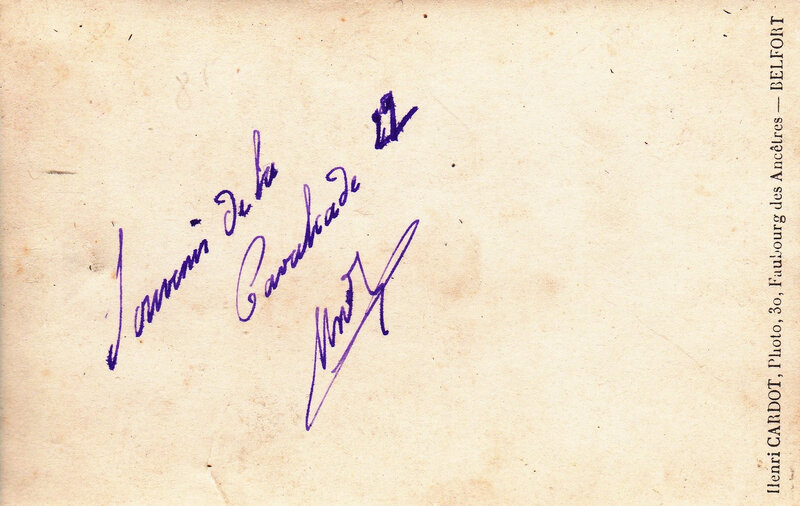 Souvenir de la
Cavalcade 22
Henri CARDOT, Photo, 30, Faubourg des Ancêtres — BELFORT